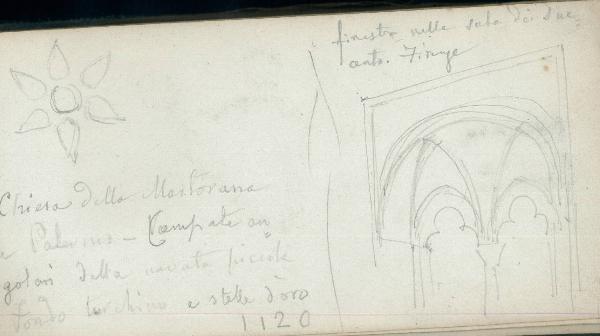 finestra nella sala dei due
cento. Firenze
Chiesa della Martorana
a Palermo - Campate an
golari della navata piccola
fondo turchino e stelle d'oro
1120